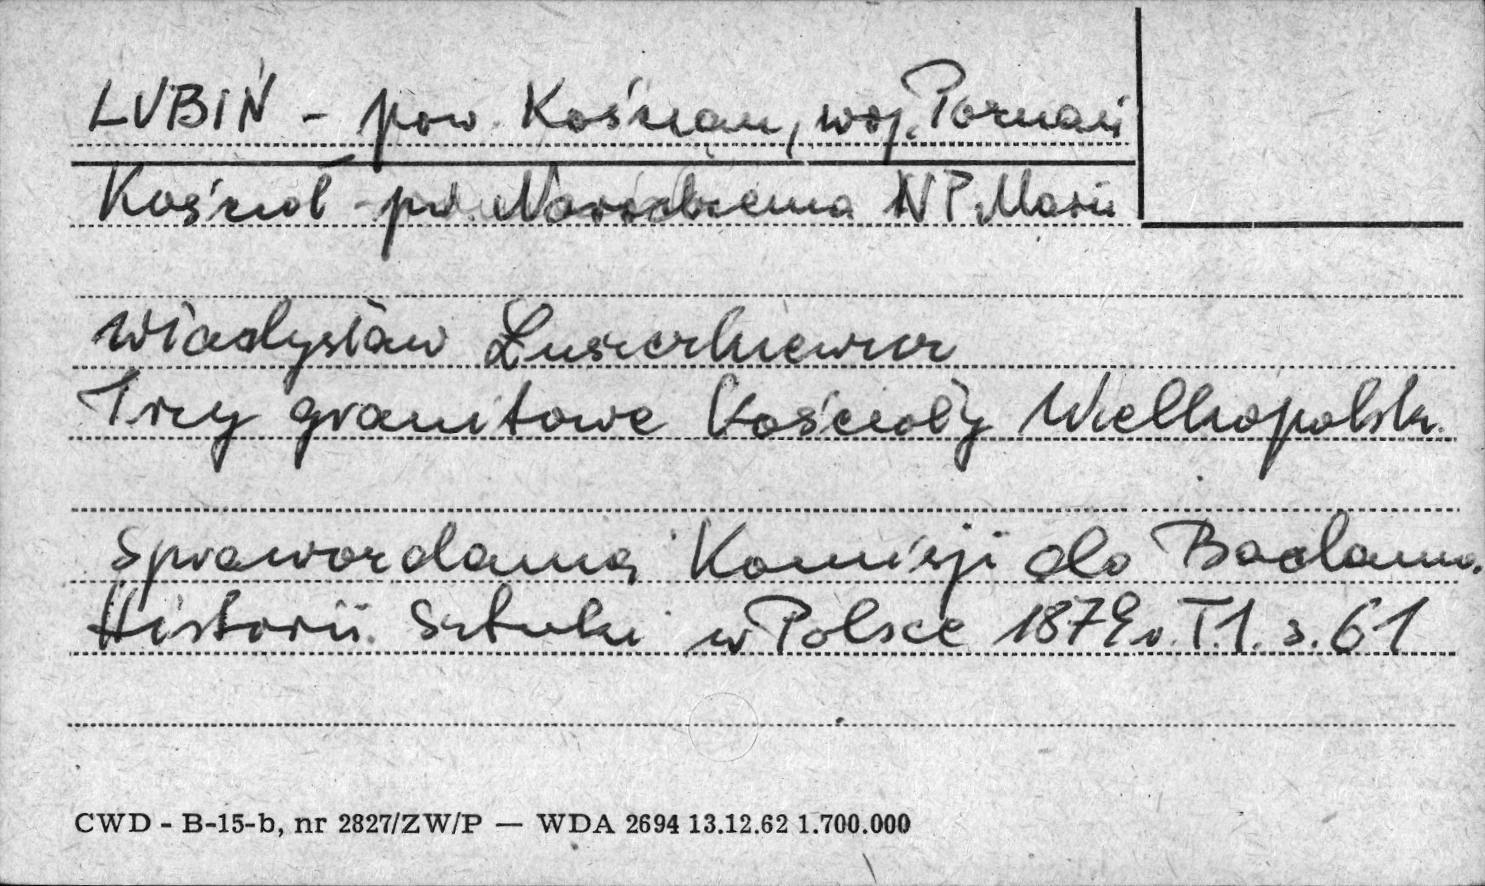 LUBIŃ - pow. Kościan, woj. Poznań
Kościół - pw. Narodzenia NP Marii
Władysław Łuszczkiewicz
Trzy granitowe Kościoły Wielkopolski
Sprawozdania Komisji do Badania
Historii Sztuki w Polsce 1879 r. T.1. s. 61
CWD - B-15-b, nr 2827/ZW/P — WDA 2694 13.12.62 1.700.000